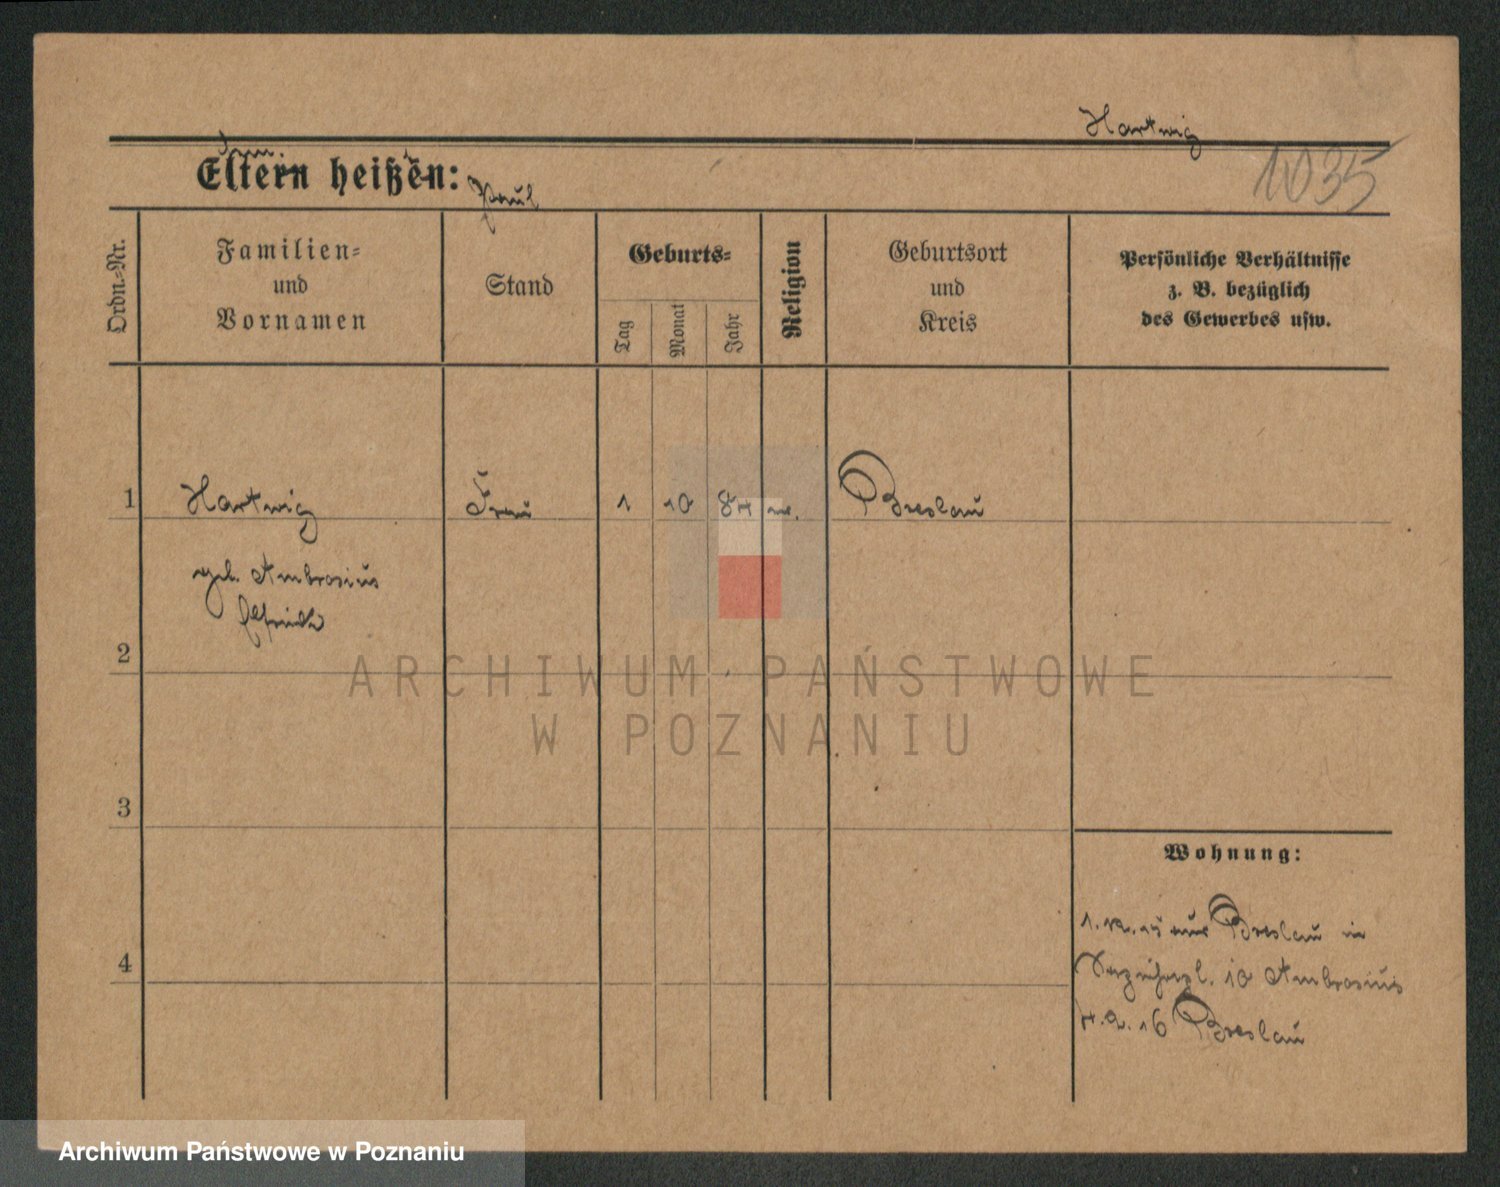 Hartwig
1035
Eltern heißen:
Paul
Ordn.-Nr.
Familien-
und
Vornamen
Stand
Geburts-
Tag
Monat
Jahr
Religion
Geburtsort
und
Kreis
Persönliche Verhältnisse
z. B. bezüglich
des Gewerbes usw.
1 Hartwig Frau 1 10 Breslau
geb. Ambrosius
Elfriede
2
3
4
Wohnung:
Breslau in
10 Ambrosius
16 Breslau
ARCHIWUM PAŃSTWOWE
W POZNANIU
Archiwum Państwowe w Poznaniu